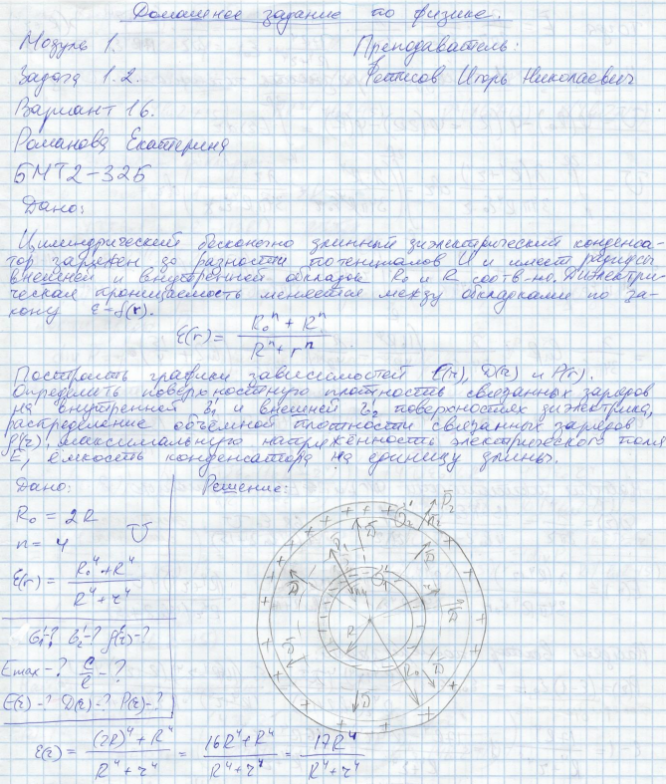 Домашнее задание по физике.
Модуль 1.
Преподаватель:
Задача 1.2.
Фетисов Игорь Николаевич
Вариант 16.
Романова Екатерина
БМТ2-32Б
Дано:
Цилиндрический бесконечно длинный диэлектрический конденса-
тор заряжен до разности потенциалов U и имеет радиусы
внешней и внутренней обкладок R₀ и R соотв-но. Диэлектри-
ческая проницаемость меняется между обкладками по за-
кону ε=f(r).
ε(r) = (R₀ⁿ + Rⁿ) / (Rⁿ + rⁿ)
Построить графики зависимостей E(r), D(r) и P(r).
Определить поверхностную плотность связанных зарядов
на внутренней σ₁' и внешней σ₂' поверхностях диэлектрика,
распределение объёмной плотности связанных зарядов
ρ'(r), максимальную напряжённость электрического поля
E, ёмкость конденсатора на единицу длины.
Дано:
Решение:
R₀ = 2R
n = 4
U
ε(r) = (R₀⁴ + R⁴) / (R⁴ + r⁴)
σ₁'-? σ₂'-? ρ'(r)-?
Emax-? C/l-?
E(r)-? D(r)-? P(r)-?
ε(r) = ((2R)⁴ + R⁴) / (R⁴ + r⁴) = (16R⁴ + R⁴) / (R⁴ + r⁴) = 17R⁴ / (R⁴ + r⁴)